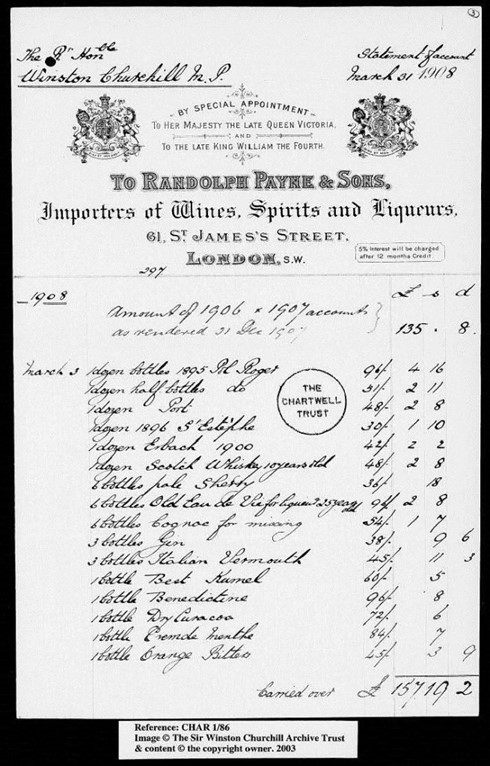 3
The Rt Honble
Winston Churchill M.P.
Statement of account
March 31 1908
BY SPECIAL APPOINTMENT
TO HER MAJESTY THE LATE QUEEN VICTORIA,
AND
TO THE LATE KING WILLIAM THE FOURTH.
TO RANDOLPH PAYNE & SONS,
Importers of Wines, Spirits and Liqueurs,
61, ST JAMES'S STREET,
LONDON, S.W.
5% Interest will be charged
after 12 months Credit
297
1908 £ s d
Amount of 1906 & 1907 accounts
as rendered 31 Dec 1907 135 . 8.
March 3 1 dozen bottles 1895 Pol Roger 96/. 4 16
1 dozen half bottles do 51/. 2 11
1 dozen Port 48/. 2 8
1 dozen 1896 St Estèphe 30/. 1 10
1 dozen Erbach 1900 42/. 2 2
1 dozen Scotch Whiskey 10 years old 48/. 2 8
6 bottles pale Sherry 36/. 18
6 bottles Old Eau de Vie for liqueur 25 years old 94/. 2 8
6 bottles Cognac for mixing 54/. 1 7
3 bottles Gin 38/. 9 6
3 bottles Italian Vermouth 45/. 11 3
1 bottle Best Kumel 60/. 5
1 bottle Benedictine 96/. 8
1 bottle Dry Curacoa 72/. 6
1 bottle Cremde Menthe 84/. 7
1 bottle Orange Bitters 45/. 3 9
Carried over £ 157 19 2
THE
CHARTWELL
TRUST
Reference: CHAR 1/86
Image © The Sir Winston Churchill Archive Trust
& content © the copyright owner. 2003